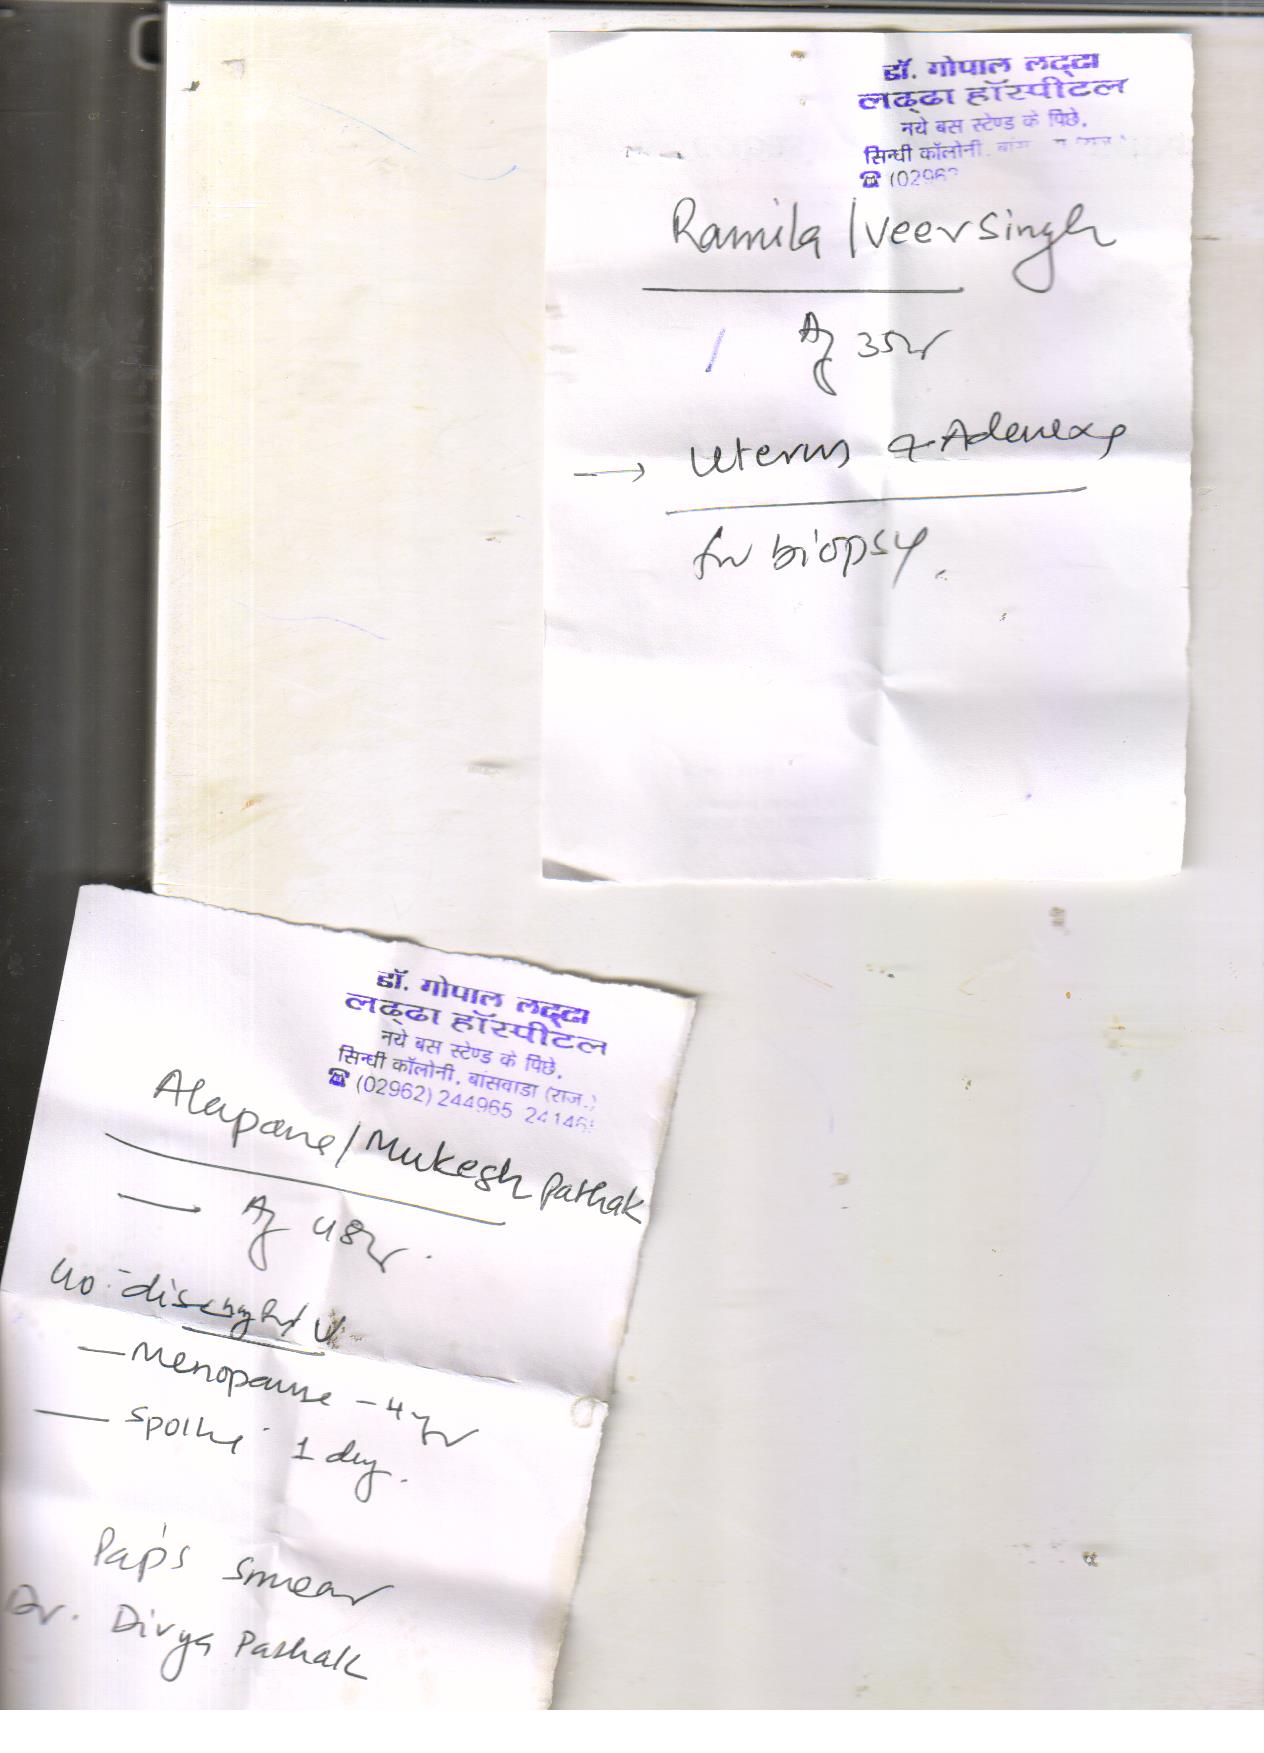 डॉ. गोपाल लद्दा
लढ्ढा हॉस्पीटल
नये बस स्टेण्ड के पिछे,
सिन्धी कॉलोनी,
☎ (02962
Ramila / Veersingh
Ag 35yr
→ Uterus & Adenexa
for biopsy.
डॉ. गोपाल लद्दा
लढ्ढा हॉस्पीटल
नये बस स्टेण्ड के पिछे,
सिन्धी कॉलोनी, बांसवाडा (राज.)
☎ (02962) 244965
/ Mukesh Pathak
— Ag 48yr.
— Menopause - 4 yr
— 1 day.
Pap's smear
Dr. Divya Pathak